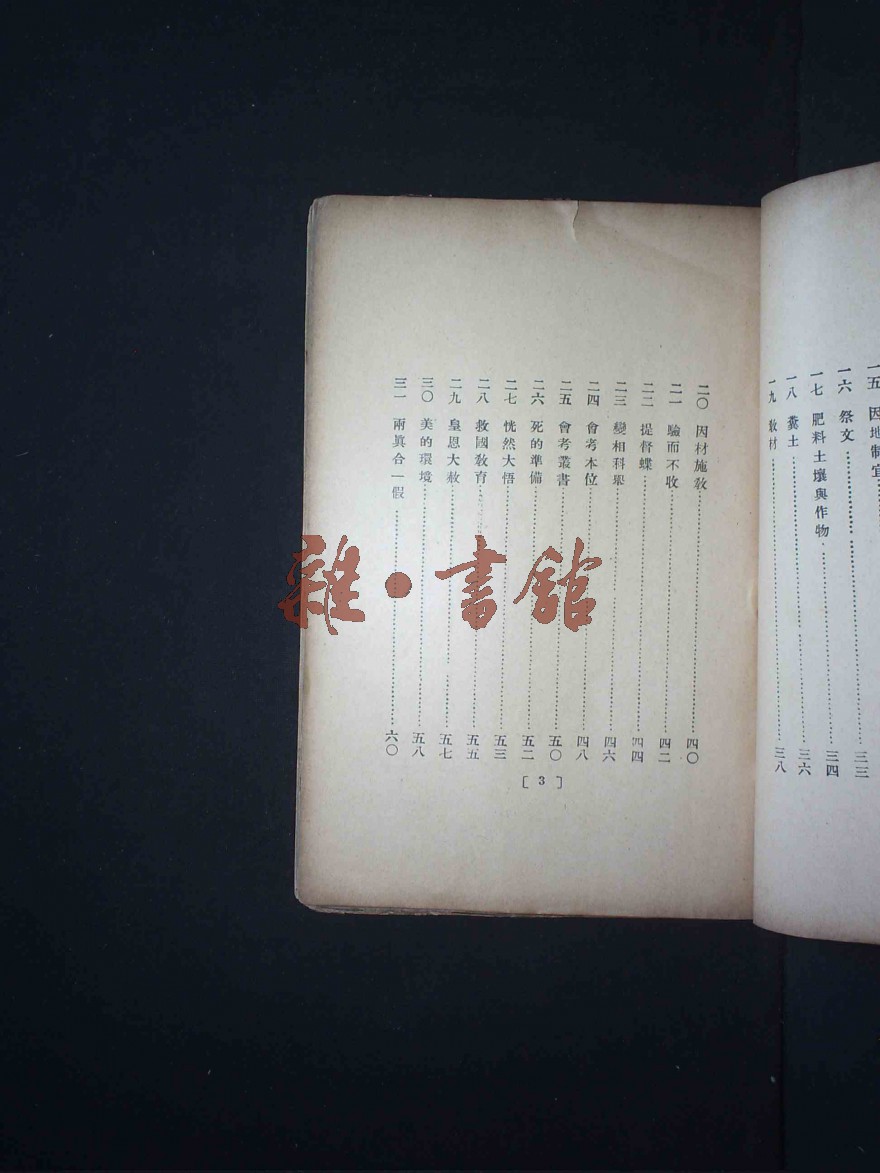 一五 因地制宜
一六 祭文……三三
一七 肥料土壤與作物……三四
一八 糞土……三六
一九 敎材……三八
二〇 因材施敎……四〇
二一 驗而不收……四二
二二 提督蝶……四四
二三 變相科舉……四六
二四 會考本位……四八
二五 會考叢書……五〇
二六 死的準備……五二
二七 恍然大悟……五三
二八 救國敎育……五五
二九 皇恩大赦……五七
三〇 美的環境……五八
三一 兩眞合一假……六〇
[3]
雜·書館